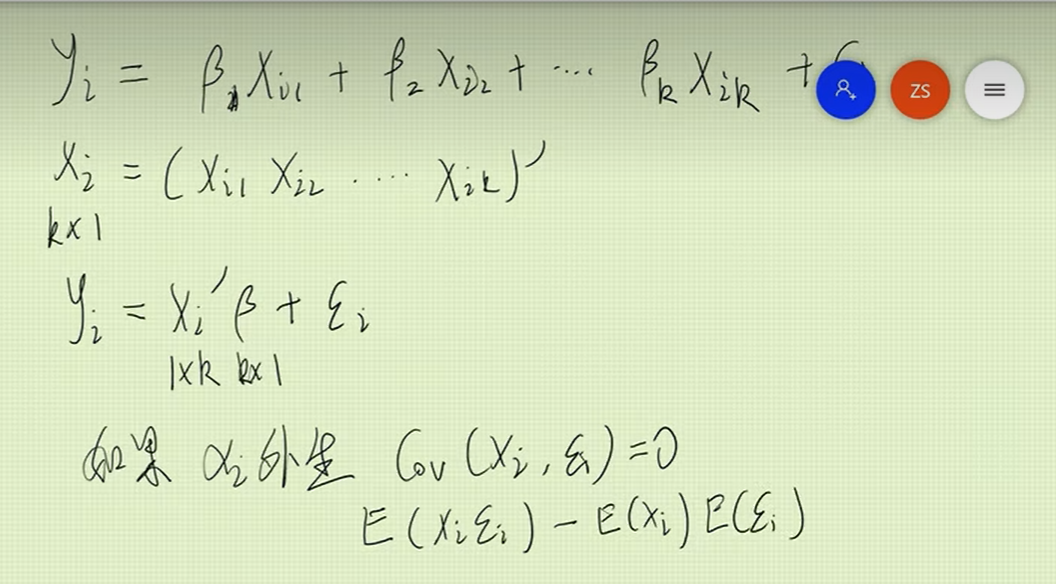 y_i = β_1 X_i1 + β_2 X_i2 + ... β_k X_ik +
ZS
X_i = (X_i1 X_i2 .... X_ik)′
k×1
y_i = X_i′ β + ε_i
1×k k×1
如果 x_i 外生 Cov (X_i, ε_i) = 0
E(X_i ε_i) - E(X_i) E(ε_i)